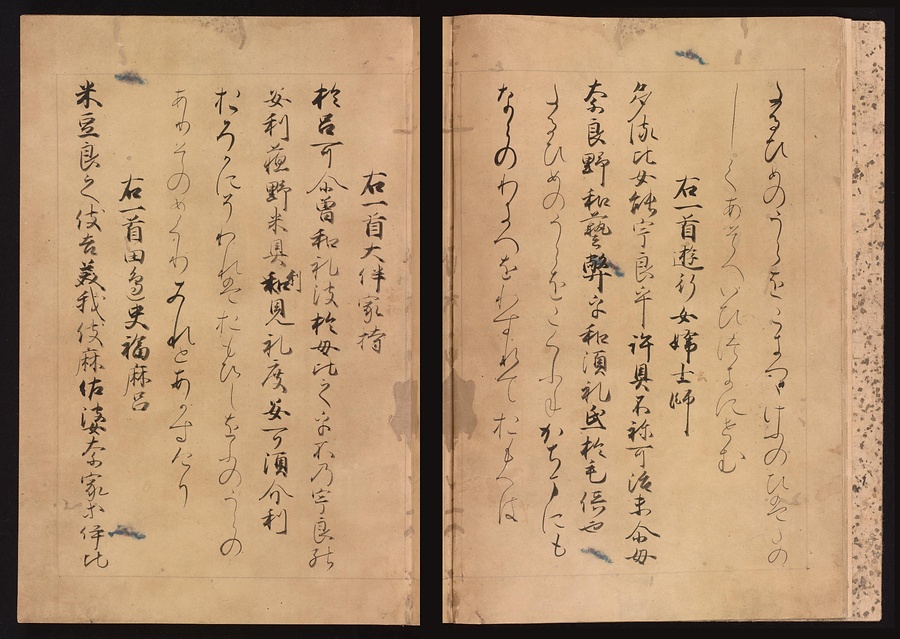 たるひめのうらをこきつつけふのひはたの
しくあそへいひつきにせむ
右一首遊行女婦土師
多流比女能宇良乎許具不祢可治末尓母
奈良野和藝弊乎和須礼氐於毛倍也
たるひめのうらをこくふねかちまにも
ならのわきへをわすれておもへは
右一首大伴家持
於呂可尓曾和礼波於母比之乎不乃宇良能
安利蘓野米具利見礼度安可須介利
おろかにそわれはおもひしをふのうらの
ありそのめくりわみれとあかすけり
右一首田邊史福麻呂
米豆良之伎吉美我伎麻佐婆奈家等伊比